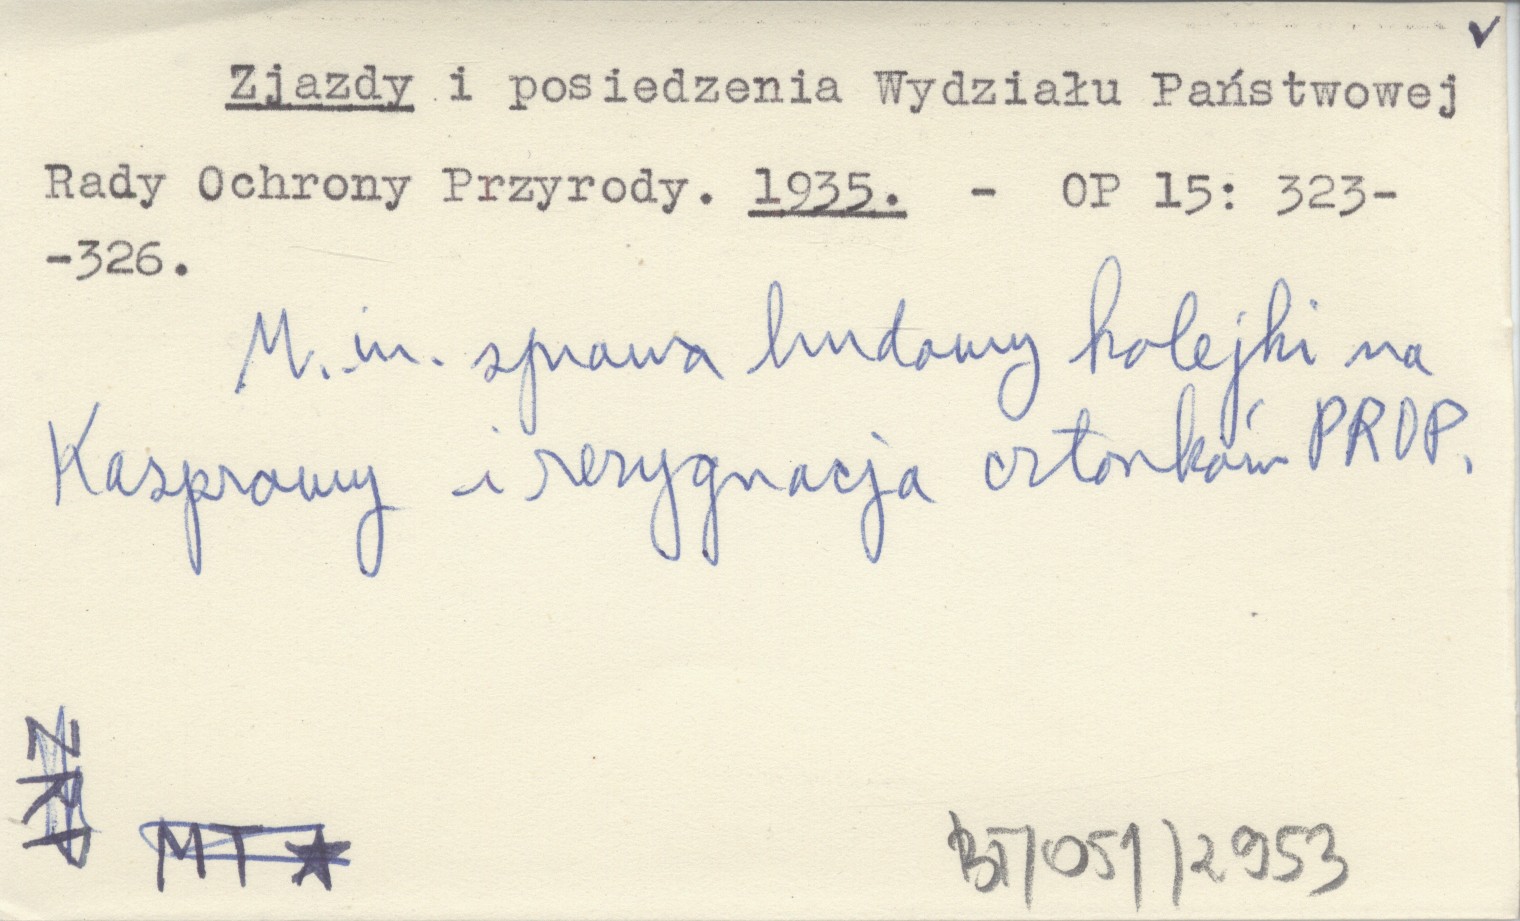 Zjazdy i posiedzenia Wydziału Państwowej
Rady Ochrony Przyrody. 1935. - OP 15: 323-
-326.
M. in. sprawa budowy kolejki na
Kasprowy i rezygnacja członków PROP.
MT
BT/051/2953